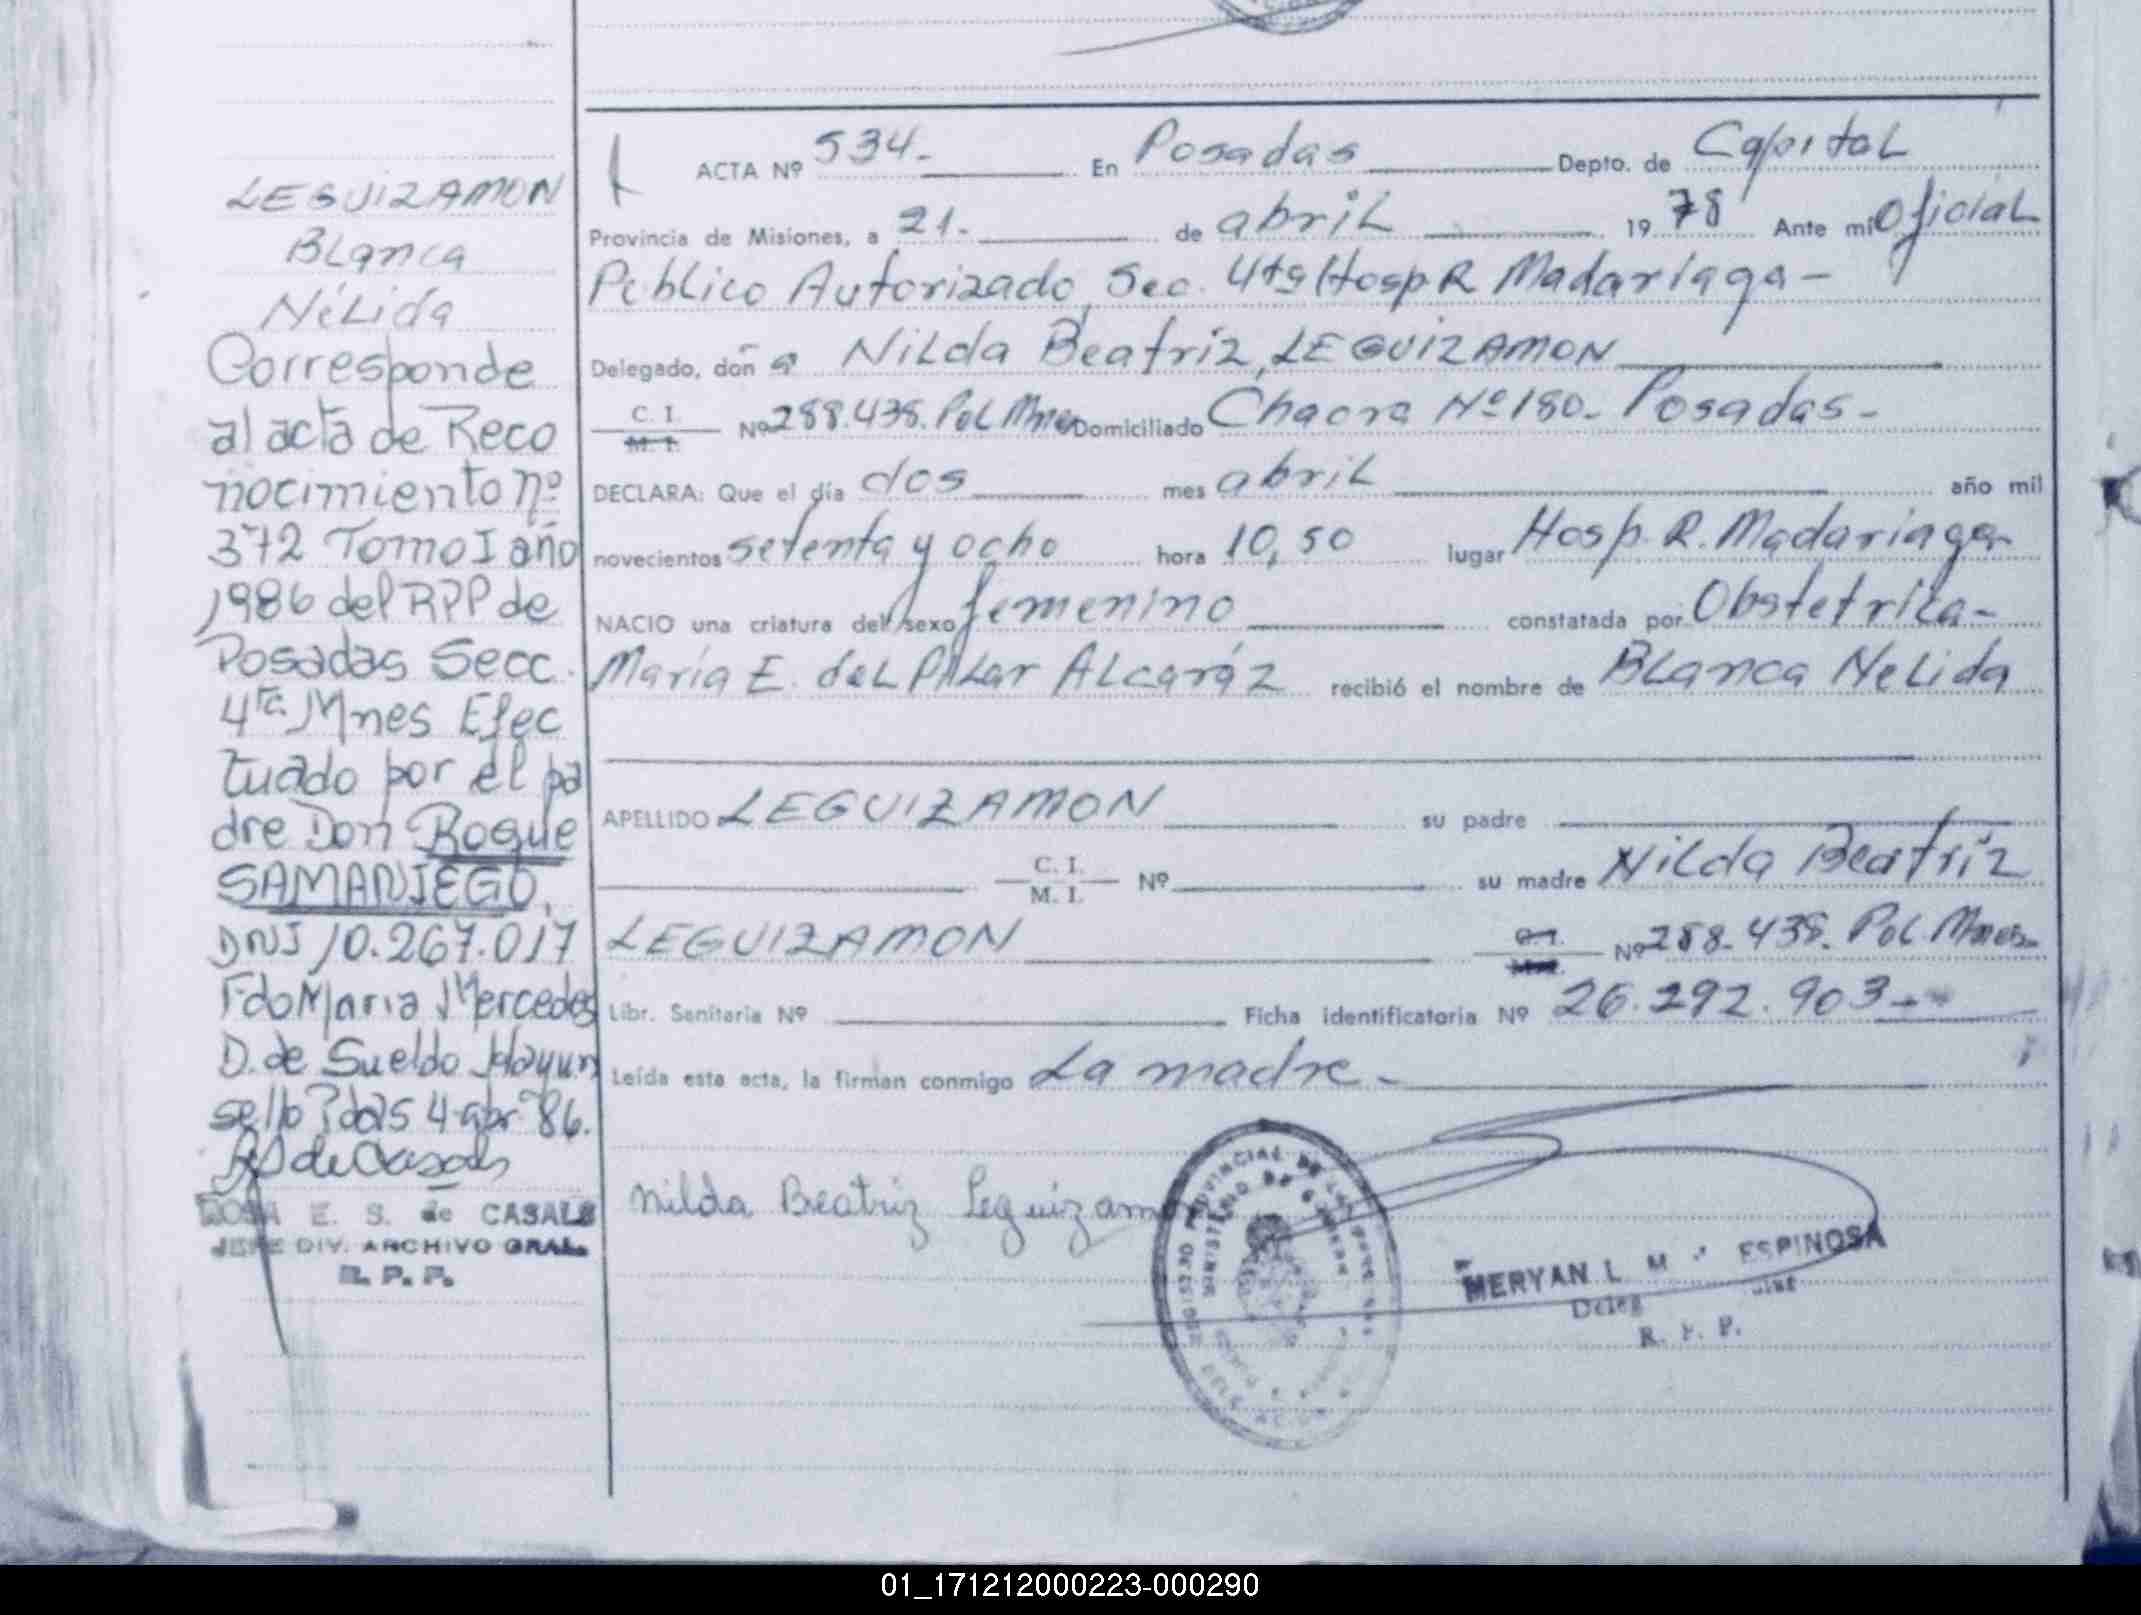 LEGUIZAMON
Blanca
Nélida
Corresponde
al acta de Reco
nocimiento nº
372 Tomo I año
1986 del RPP de
Posadas Secc.
4ta Mnes Efec
tuado por el pa
dre Don Roque
SAMANIEGO,
DNI 10.267.017
Fdo Maria Mercedes
D. de Sueldo Hay un
sello Pdas 4-abr-86.
ROSA E. S. de CASALS
JEFE DIV. ARCHIVO GRAL.
R. P. P.
ACTA Nº 534.- En Posadas Depto. de Capital
Provincia de Misiones, a 21.- de abril 1978 Ante mi Oficial
Público Autorizado, Sec. 4ta Hosp R Madariaga -
Delegado, doña Nilda Beatriz, LEGUIZAMON
C. I. M. I. Nº 288.438. Pol Mnes Domiciliado Chacra Nº 180- Posadas-
DECLARA: Que el día dos mes abril año mil
novecientos setenta y ocho hora 10,50 lugar Hosp. R. Madariaga
NACIO una criatura del sexo femenino constatada por Obstetrica-
María E. del Pilar Alcaráz recibió el nombre de Blanca Nelida
APELLIDO LEGUIZAMON su padre
C. I. M. I. Nº su madre Nilda Beatriz
LEGUIZAMON Nº 288.438. Pol Mnes.
Libr. Sanitaria Nº Ficha identificatoria Nº 26.292.903-
Leída esta acta, la firman conmigo La madre-
Nilda Beatriz Leguizamon
MERYAN L. M ESPINOSA
R. P. P.
01_171212000223-000290